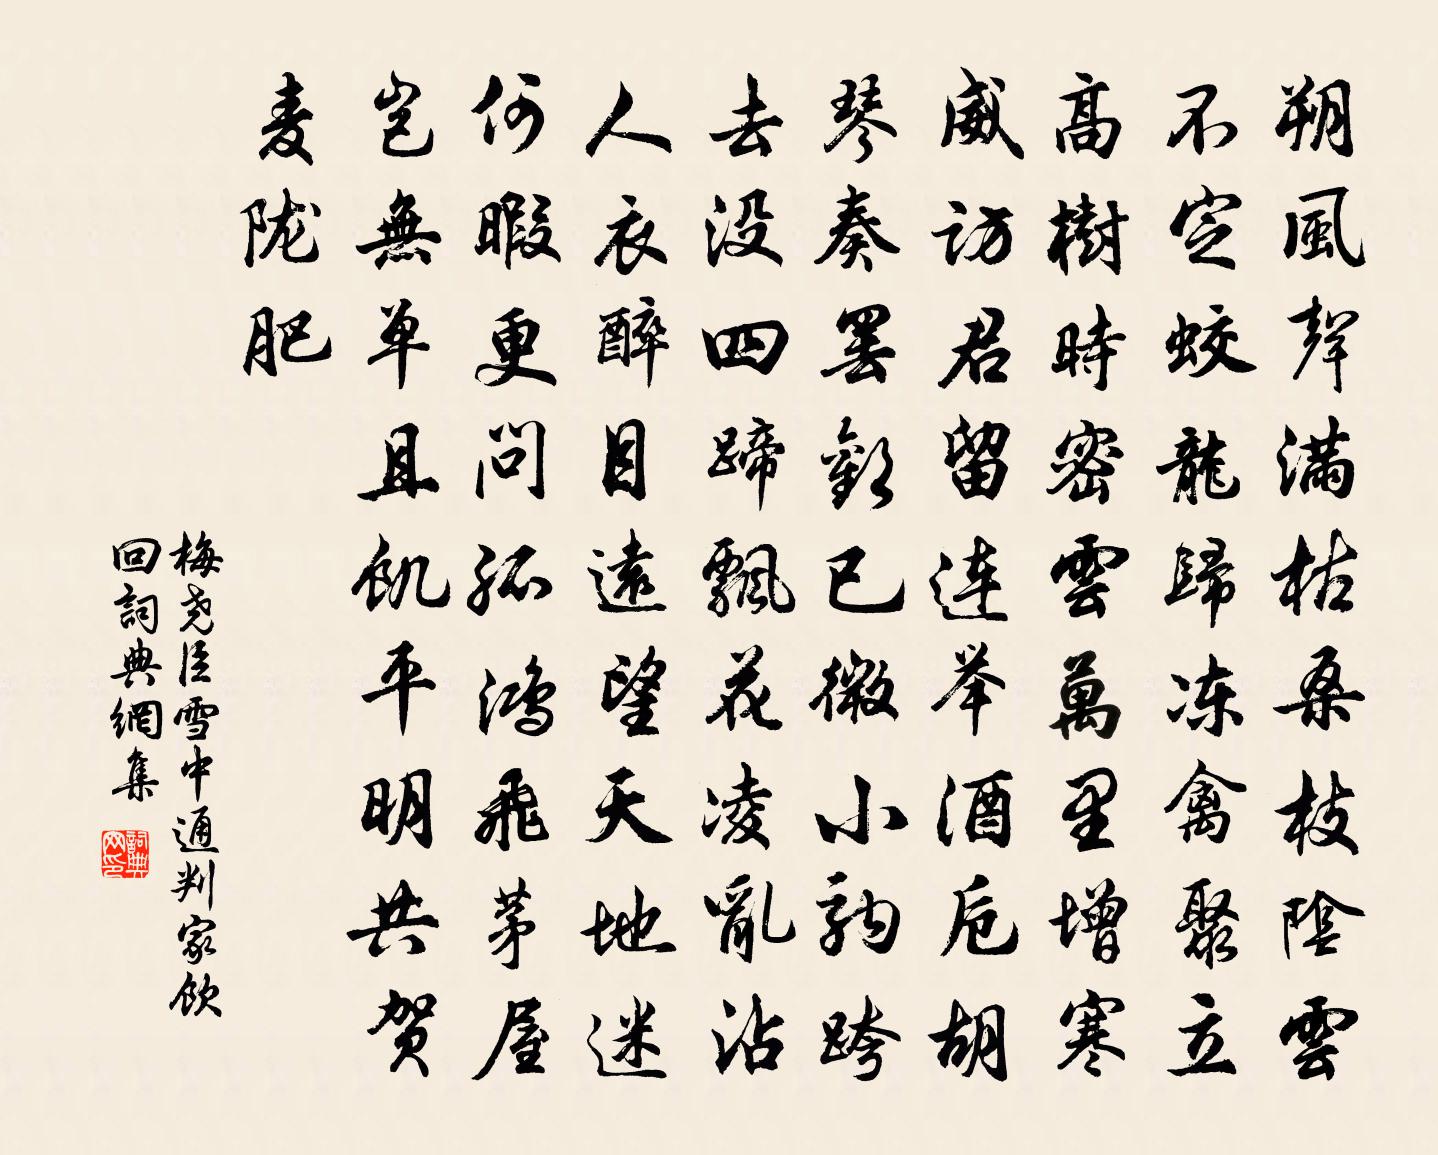 朔風聲满枯桑枝陰雲
不定蛟龍歸冻禽聚立
高樹時密雲萬里增寒
威訪君留連举酒卮胡
琴奏罢歡已微小駒跨
去没四蹄飄花凌亂沾
人衣醉目遠望天地迷
何暇更問孤鸿飛茅屋
岂無单且飢平明共贺
麦陇肥
梅尧臣雪中通判家飲
回詞典網集
詞典
网印